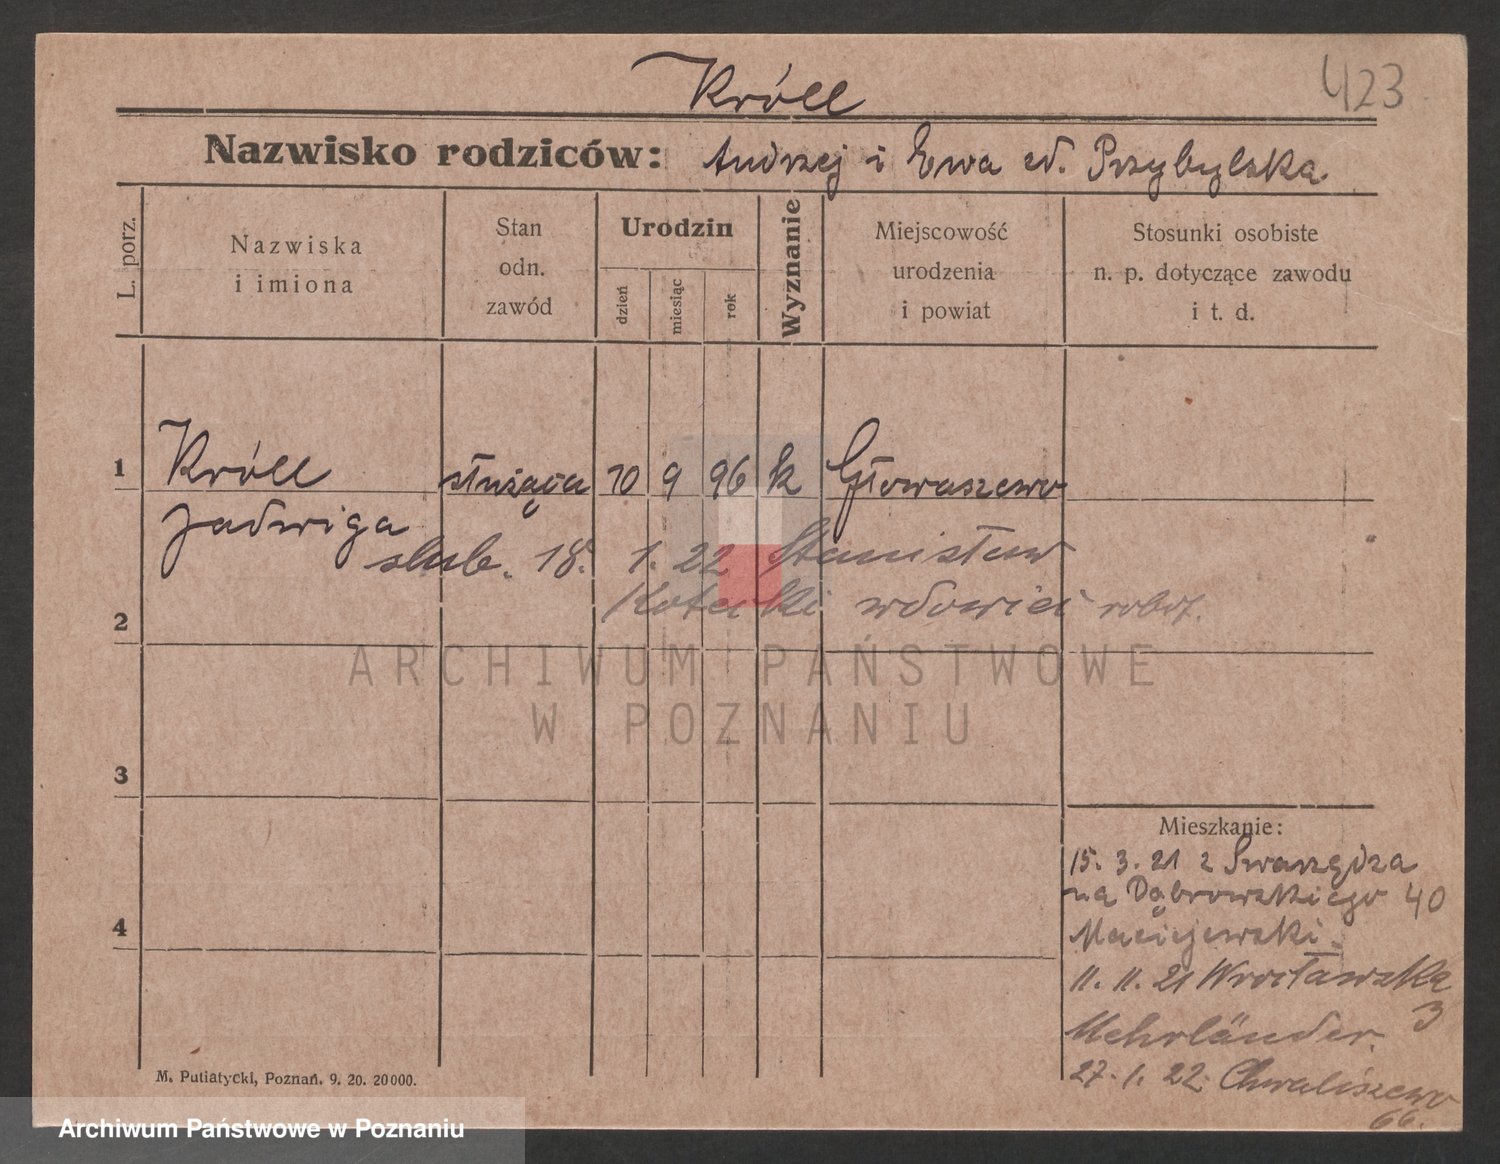 Króll
423
Nazwisko rodziców: Andrzej i Ewa cd. Przybylska
L. porz.
Nazwiska
i imiona
Stan
odn.
zawód
Urodzin
dzień
miesiąc
rok
Wyznanie
Miejscowość
urodzenia
i powiat
Stosunki osobiste
n. p. dotyczące zawodu
i t. d.
1 Króll służąca 10 9 96 k Głowaszewo
Jadwiga
slub. 18. 1. 22 Stanisław
2 wdowiec robot.
ARCHIWUM PAŃSTWOWE
W POZNANIU
3
Mieszkanie:
15. 3. 21 z Swarzędza
na Dąbrowskiego 40
4 Maciejewski.
11. 11. 21 Wrocławska
3
Mehrländer.
27. 1. 22 Chwaliszewo
66.
M. Putiatycki, Poznań. 9. 20. 20000.
Archiwum Państwowe w Poznaniu